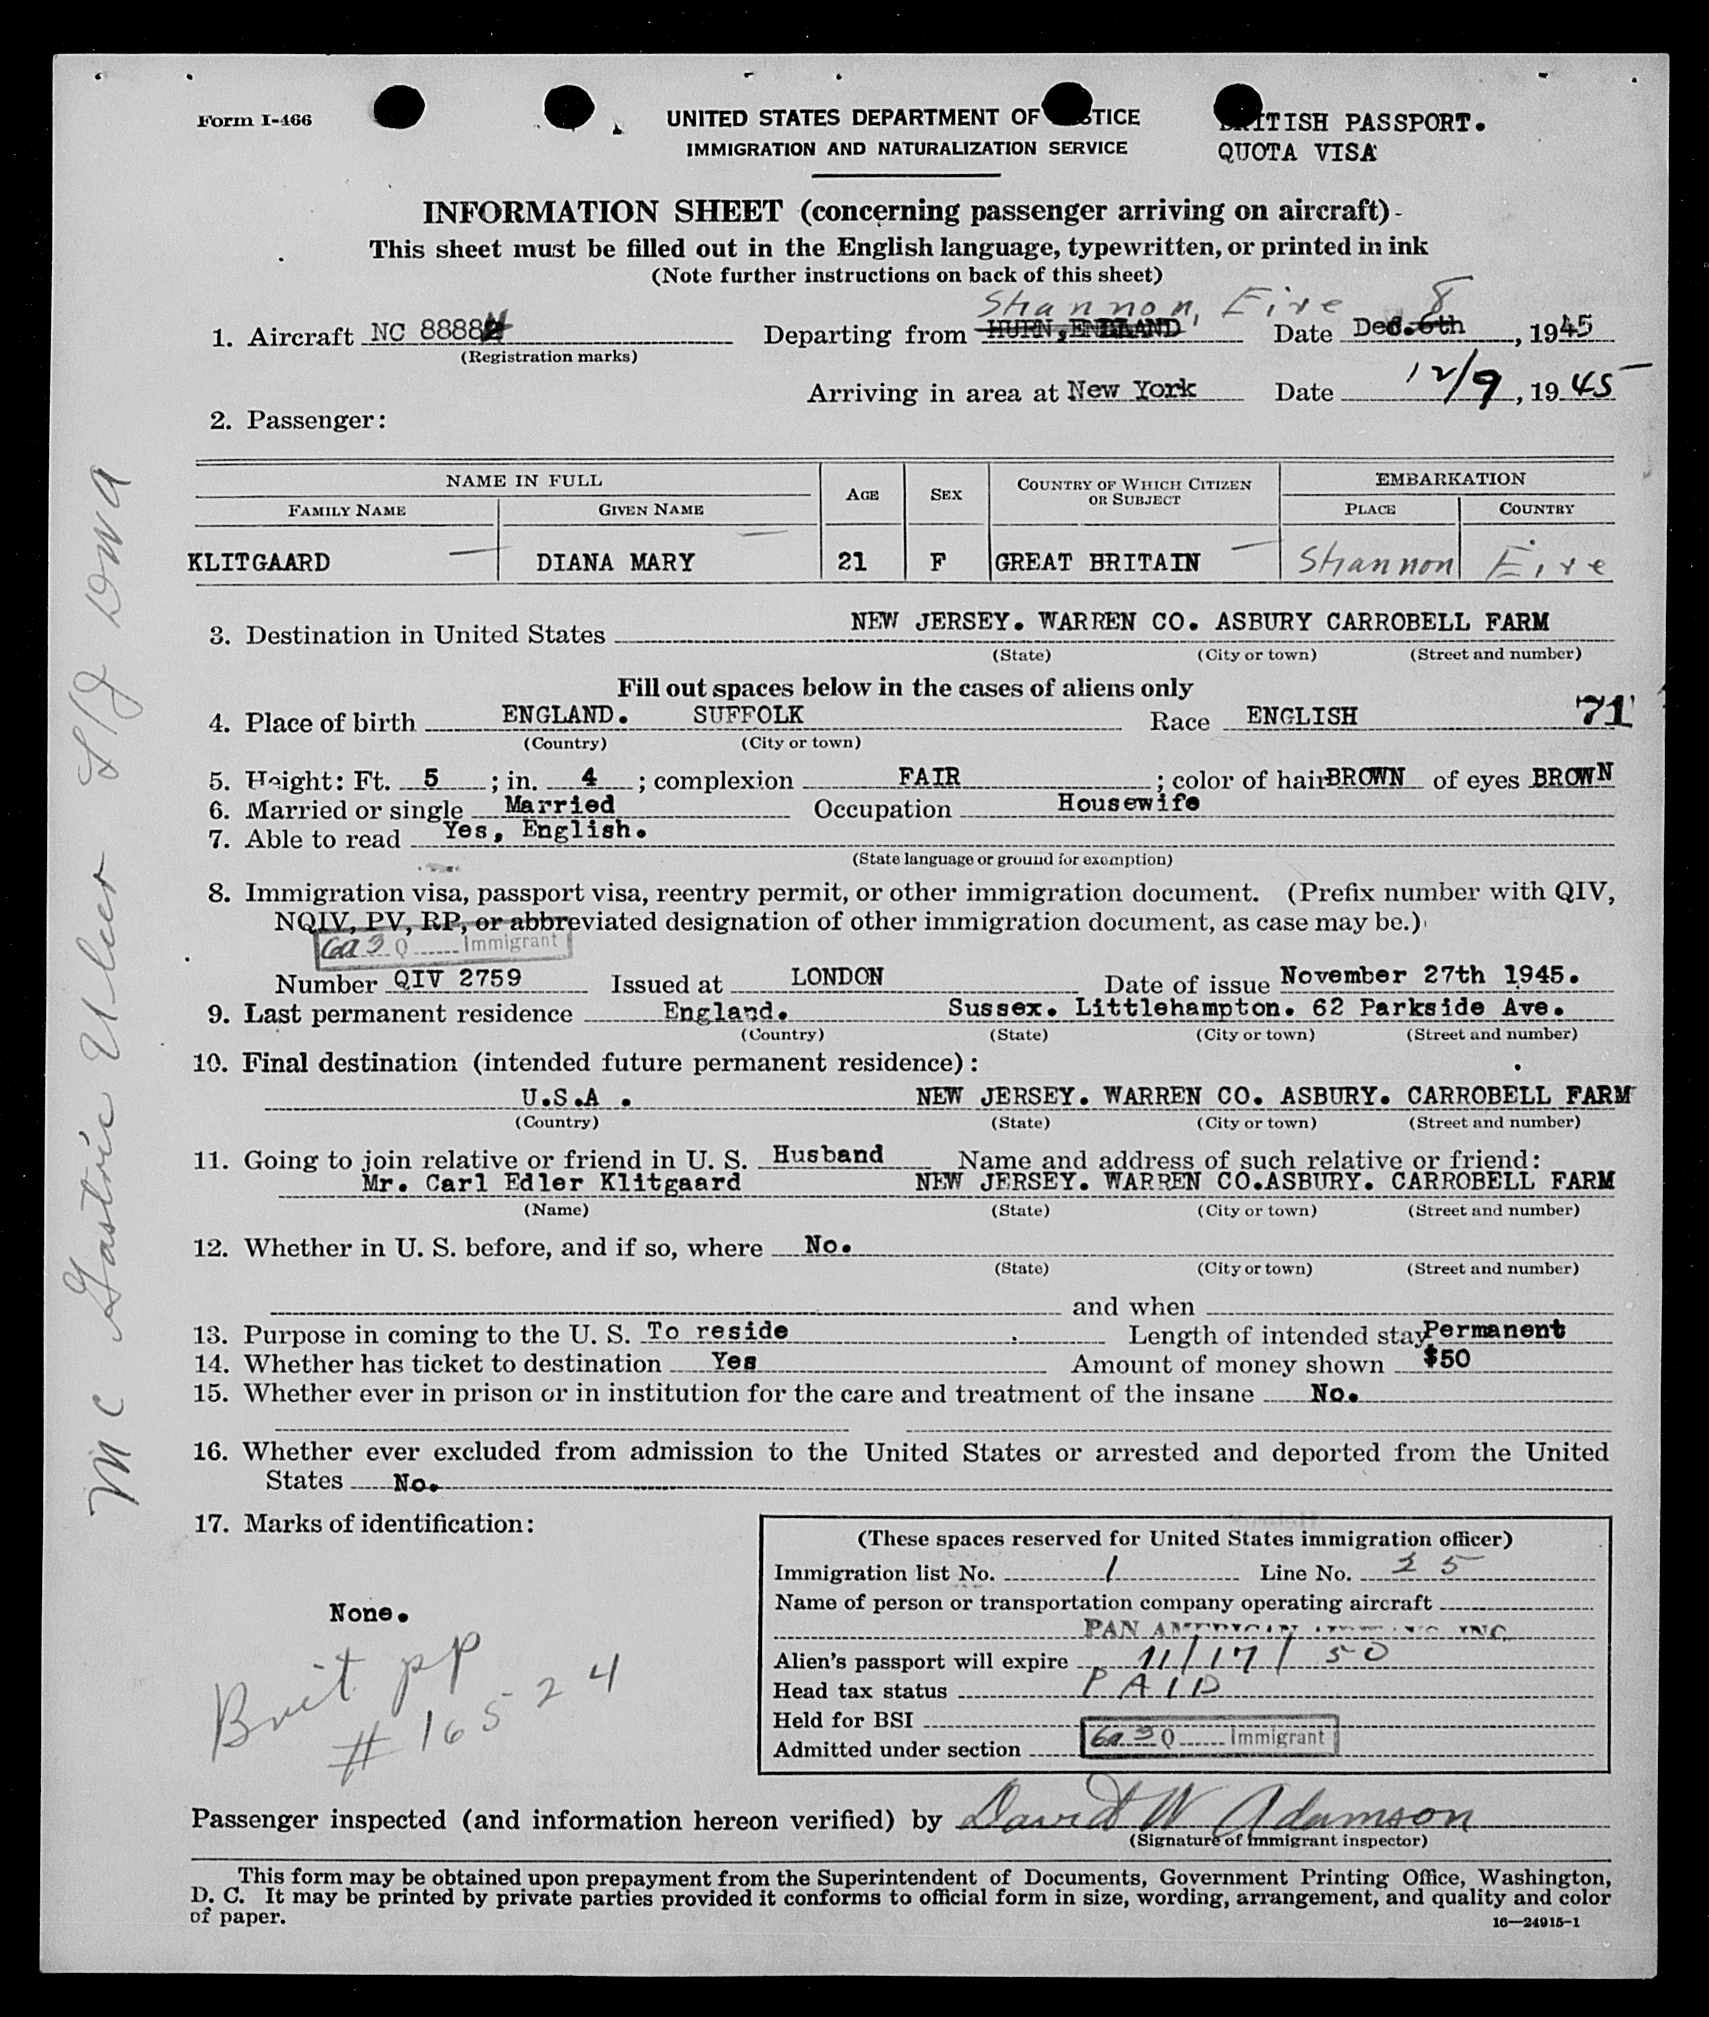 Form I-466
UNITED STATES DEPARTMENT OF STICE
IMMIGRATION AND NATURALIZATION SERVICE
BRITISH PASSPORT.
QUOTA VISA
INFORMATION SHEET (concerning passenger arriving on aircraft)
This sheet must be filled out in the English language, typewritten, or printed in ink
(Note further instructions on back of this sheet)
Shannon, Eire 8
1. Aircraft NC 8888 Departing from HURN, ENGLAND Date Dec. 6th, 1945
(Registration marks)
Arriving in area at New York Date 12/9, 1945
2. Passenger:
NAME IN FULL AGE SEX COUNTRY OF WHICH CITIZEN OR SUBJECT EMBARKATION
FAMILY NAME GIVEN NAME PLACE COUNTRY
KLITGAARD DIANA MARY 21 F GREAT BRITAIN Shannon Eire
3. Destination in United States NEW JERSEY. WARREN CO. ASBURY CARROBELL FARM
(State) (City or town) (Street and number)
Fill out spaces below in the cases of aliens only
71
4. Place of birth ENGLAND. SUFFOLK Race ENGLISH
(Country) (City or town)
5. Height: Ft. 5; in. 4; complexion FAIR; color of hair BROWN of eyes BROWN
6. Married or single Married Occupation Housewife
7. Able to read Yes, English.
(State language or ground for exemption)
8. Immigration visa, passport visa, reentry permit, or other immigration document. (Prefix number with QIV,
NQIV, PV, RP, or abbreviated designation of other immigration document, as case may be.)
6a3 Q Immigrant
Number QIV 2759 Issued at LONDON Date of issue November 27th 1945.
9. Last permanent residence England. Sussex. Littlehampton. 62 Parkside Ave.
(Country) (State) (City or town) (Street and number)
10. Final destination (intended future permanent residence):
U.S.A . NEW JERSEY. WARREN CO. ASBURY. CARROBELL FARM
(Country) (State) (City or town) (Street and number)
11. Going to join relative or friend in U. S. Husband Name and address of such relative or friend:
Mr. Carl Edler Klitgaard NEW JERSEY. WARREN CO.ASBURY. CARROBELL FARM
(Name) (State) (City or town) (Street and number)
12. Whether in U. S. before, and if so, where No.
(State) (City or town) (Street and number)
and when
13. Purpose in coming to the U. S. To reside Length of intended stay Permanent
14. Whether has ticket to destination Yes Amount of money shown $50
15. Whether ever in prison or in institution for the care and treatment of the insane No.
16. Whether ever excluded from admission to the United States or arrested and deported from the United
States No.
17. Marks of identification:
None.
Brit pp
# 16524
(These spaces reserved for United States immigration officer)
Immigration list No. 1 Line No. 25
Name of person or transportation company operating aircraft
PAN AMERICAN AIRWAYS INC.
Alien's passport will expire 11/17/50
Head tax status PAID
Held for BSI
Admitted under section 6a3 Q Immigrant
Passenger inspected (and information hereon verified) by David W Adamson
(Signature of immigrant inspector)
This form may be obtained upon prepayment from the Superintendent of Documents, Government Printing Office, Washington,
D. C. It may be printed by private parties provided it conforms to official form in size, wording, arrangement, and quality and color
of paper.
16—24915-1
MC Gastric Ulcer DWA